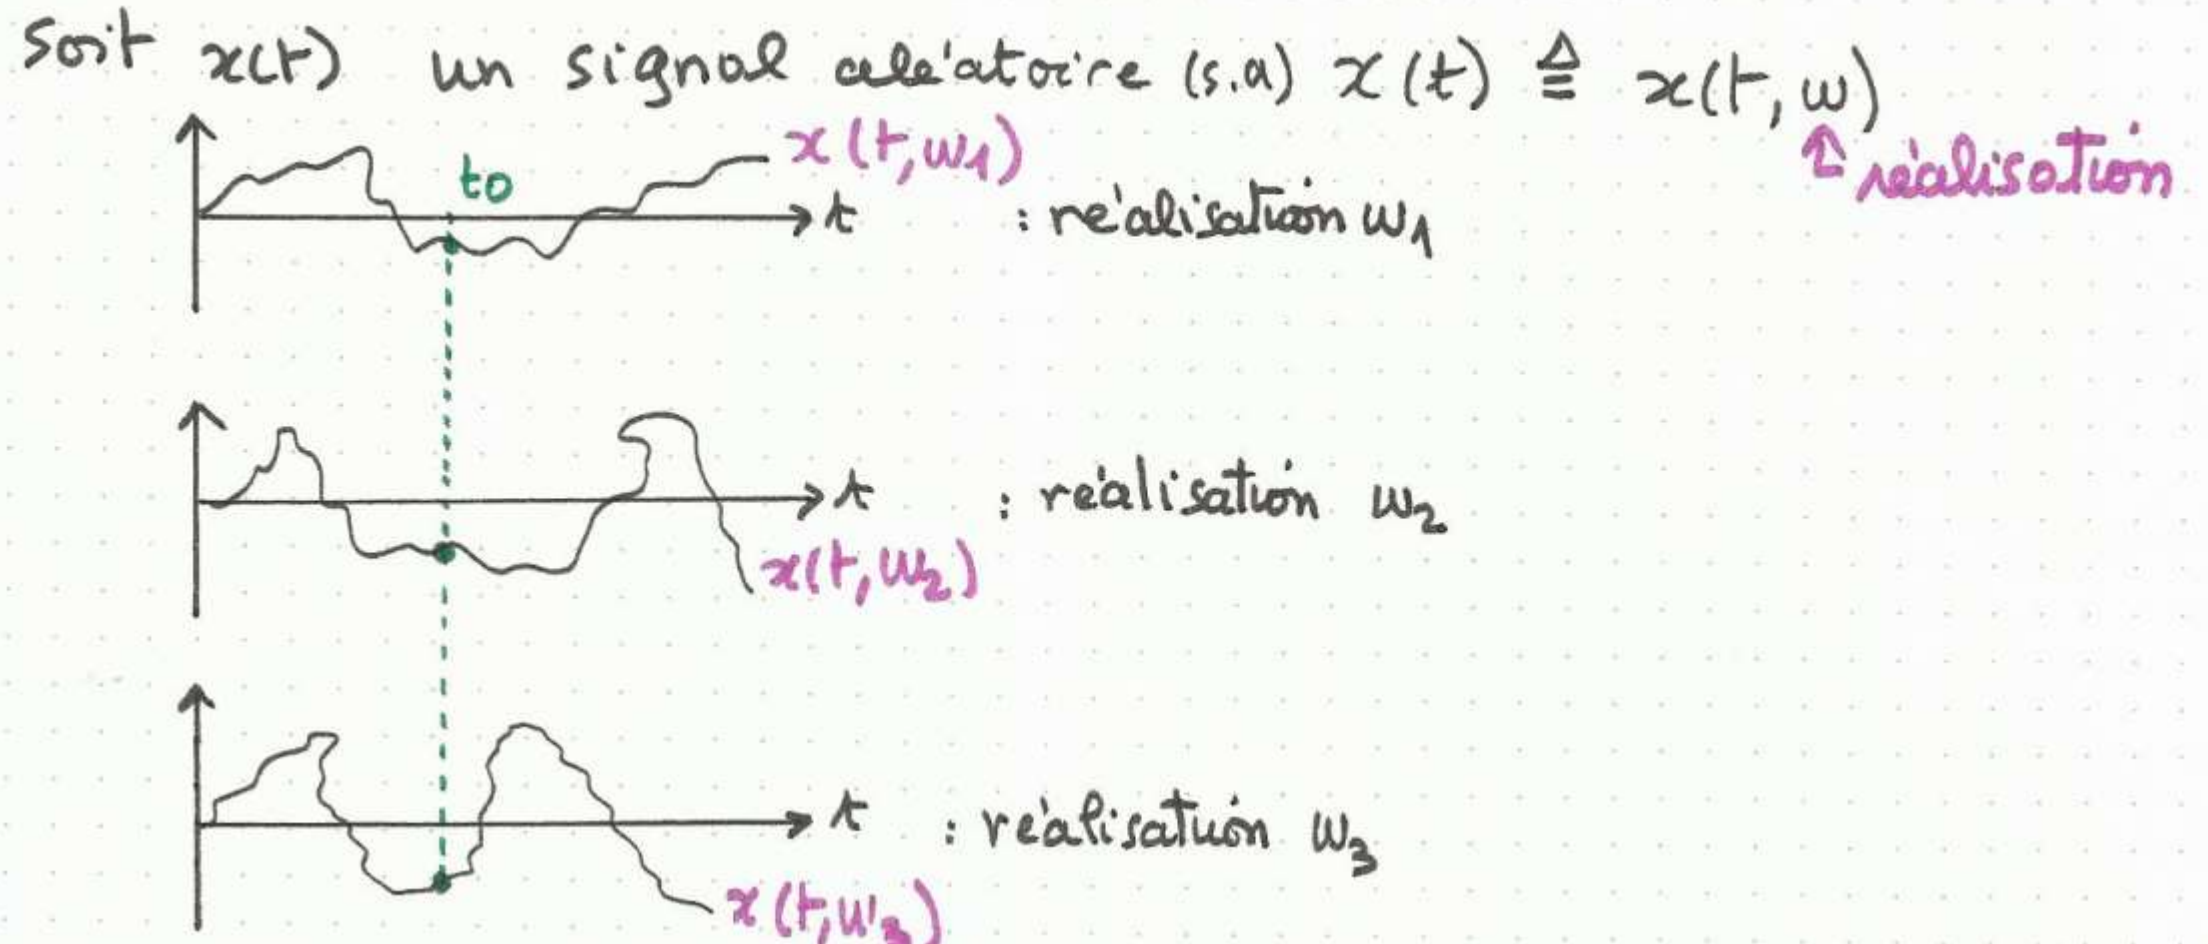 soit x(t) un signal aléatoire (s.a) x(t) ≜ x(t, w)
↑ réalisation
x(t, w1)
t0
t : réalisation w1
t : réalisation w2
x(t, w2)
t : réalisation w3
x(t, w3)